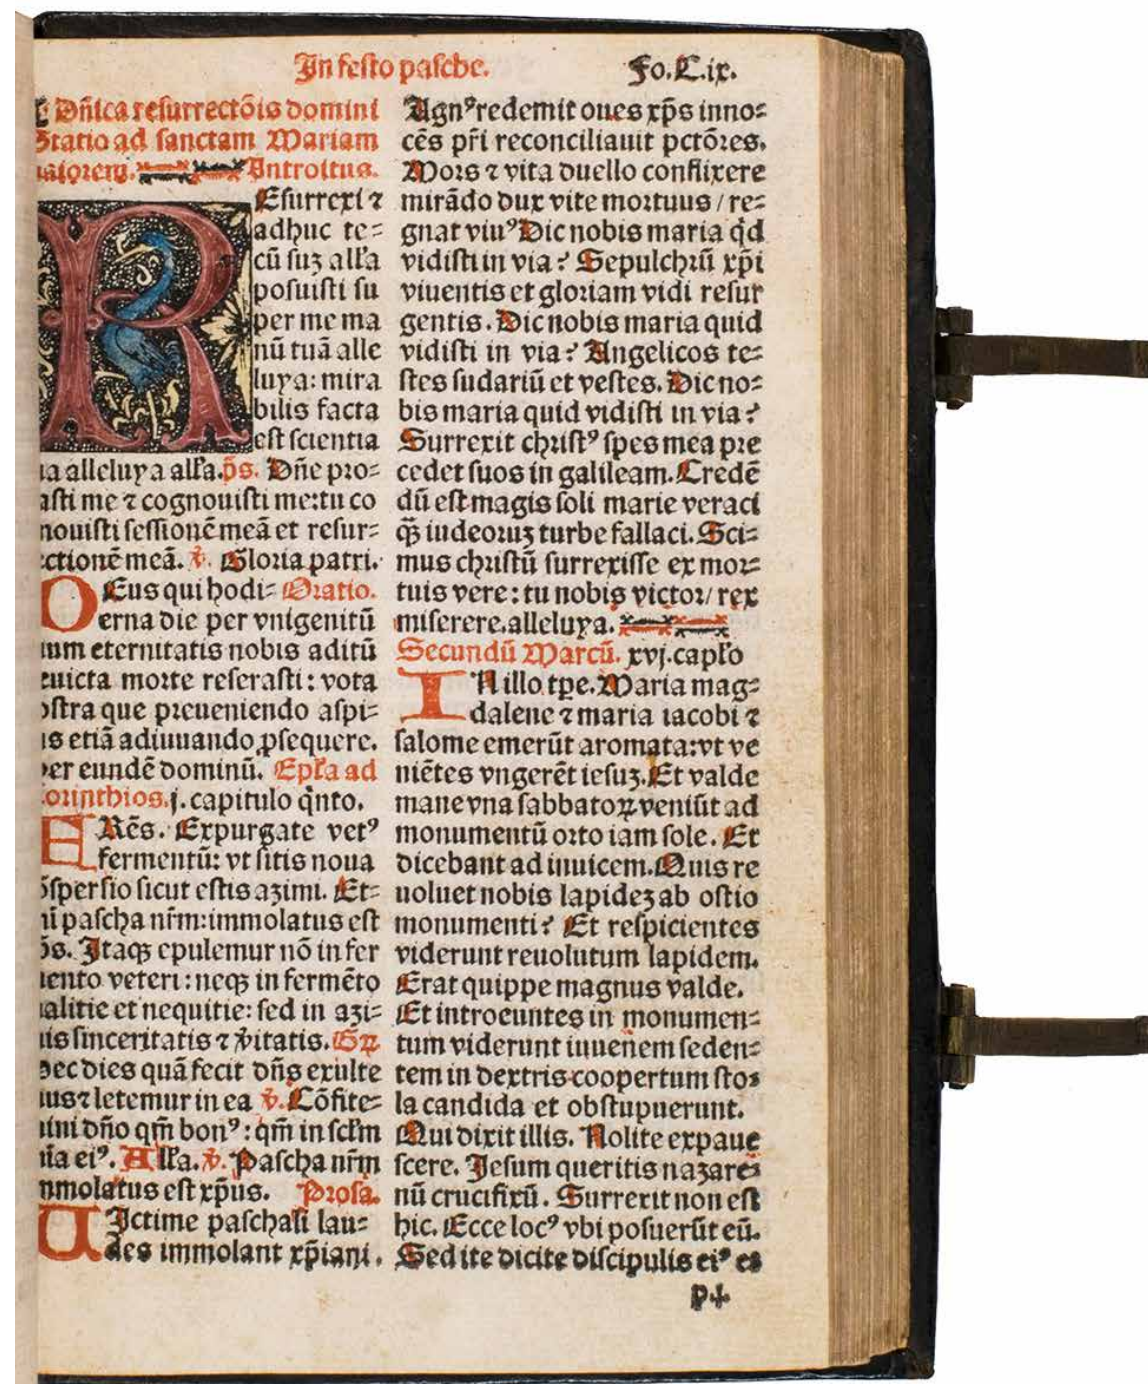 In festo pasche.
Fo.C.ix.
Dn̄ica resurrectōis domini
Statio ad sanctam Mariam
maiorem. Introitus.
REsurrexi ⁊
adhuc te⸗
cū suꝫ all'a
posuisti su
per me ma
nū tuā alle
luya: mira
bilis facta
est scientia
ua alleluya all'a. p̄s. Dn̄e pro⸗
asti me ⁊ cognouisti me: tu co
nouisti sessionē meā et resur⸗
ectionē meā. ℣. Gloria patri.
DEus qui hodi⸗ Oratio.
erna die per vnigenitū
uum eternitatis nobis aditū
euicta morte reserasti: vota
ostra que preueniendo aspi⸗
as etiā adiuuando ꝓsequere.
Per eundē dominū. Epl'a ad
Corinthios. j. capitulo q̇nto.
FRēs. Expurgate vetꝰ
fermentū: vt sitis noua
ōspersio sicut estis azimi. Et⸗
ni pascha nr̄m: immolatus est
xp̄s. Itaqꝫ epulemur nō in fer
mento veteri: neqꝫ in fermēto
malitie et nequitie: sed in azi⸗
mis sinceritatis ⁊ v̄itatis. Gꝝ
Hec dies quā fecit dn̄s exulte
mus ⁊ letemur in ea ℣. Cōfite⸗
mini dn̄o qm̄ bonꝰ: qm̄ in scl'm
mīa eiꝰ. All'a. ℣. Pascha nr̄m
immolatus est xp̄us. Prosa.
UIctime paschali lau⸗
des immolant xp̄iani.
Agnꝰ redemit oues xp̄s inno⸗
cēs pr̄i reconciliauit pctōres.
Mors ⁊ vita duello conflixere
mirādo dux vite mortuus / re⸗
gnat viuꝰ Dic nobis maria qd̄
vidisti in via? Sepulchrū xp̄i
viuentis et gloriam vidi resur
gentis. Dic nobis maria quid
vidisti in via? Angelicos te⸗
stes sudariū et vestes. Dic no⸗
bis maria quid vidisti in via?
Surrexit christꝰ spes mea pre
cedet suos in galileam. Credē
dū est magis soli marie veraci
qꝫ̄ iudeoruꝫ turbe fallaci. Sci⸗
mus christū surrexisse ex mor⸗
tuis vere: tu nobis victor / rex
miserere. alleluya.
Secundū Marcū. xvj. capl'o
IN illo tp̄e. Maria mag⸗
dalene ⁊ maria iacobi ⁊
salome emerūt aromata: vt ve
niētes vngerēt iesuꝫ. Et valde
mane vna sabbatoꝝ veniūt ad
monumentū orto iam sole. Et
dicebant ad inuicem. Quis re
uoluet nobis lapideꝫ ab ostio
monumenti? Et respicientes
viderunt reuolutum lapidem.
Erat quippe magnus valde.
Et introeuntes in monumen⸗
tum viderunt iuuenem seden⸗
tem in dextris coopertum sto⸗
la candida et obstupuerunt.
Qui dixit illis. Nolite expaue
scere. Iesum queritis nazare⸗
nū crucifixū. Surrexit non est
hic. Ecce locꝰ vbi posuerūt eū.
Sed ite dicite discipulis eiꝰ et